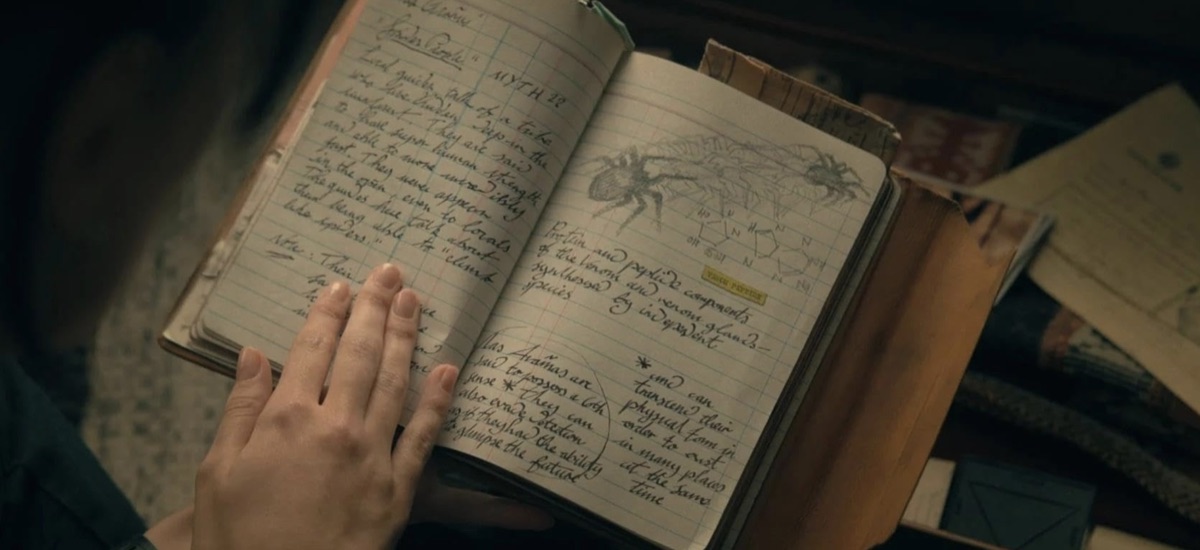 "Spider People"
MYTH 28
Local guides talk of a tribe
who live hidden deep in the
rainforest. They are said
to have super human strength
and able to move more swiftly
They never appear
in the open even to locals
The guides have talk about
their being able to "climb
like spiders."
Note: Their
Protein and peptide components
of the venom and venom glands—
synthesized by independent
species
Las Arañas are
said to possess a 6th
sense * They can
also evade detection
they have the ability
glimpse the future
* and can
transcend their
physical form in
order to exist
in many places
at the same
time
OH
N
N
N
N